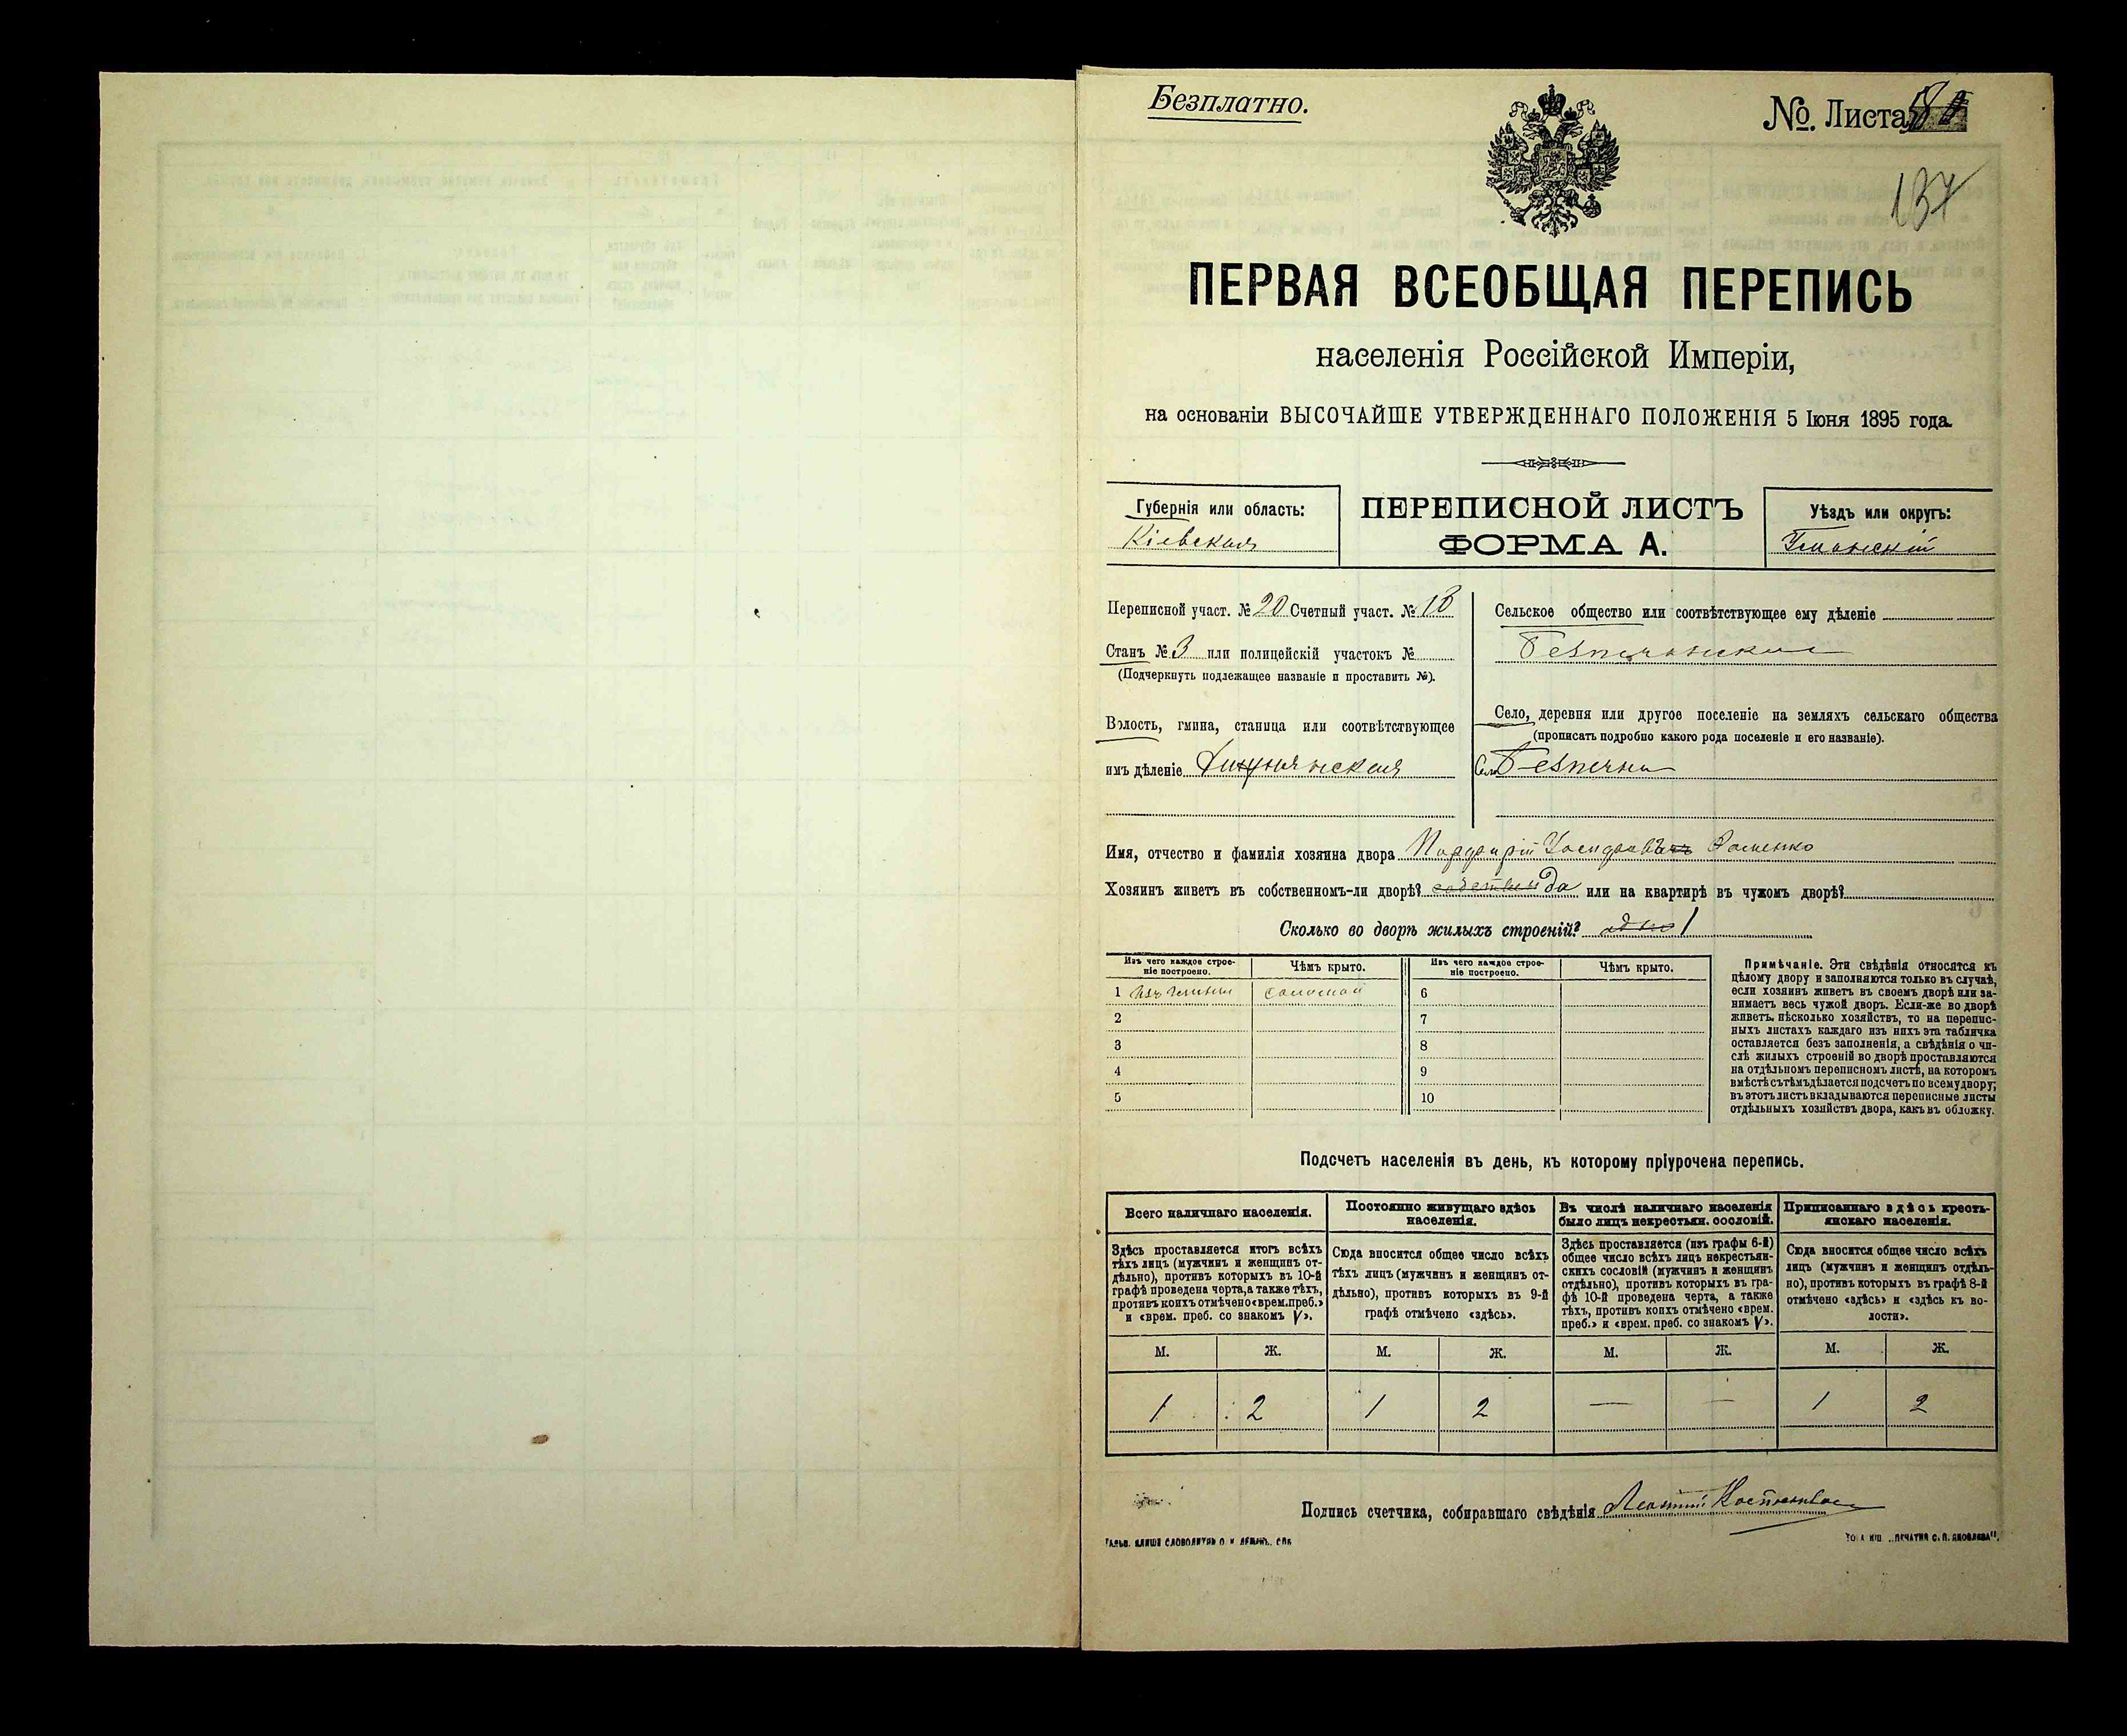 Безплатно.
№. Листа
137
ПЕРВАЯ ВСЕОБЩАЯ ПЕРЕПИСЬ
населенія Россійской Имперіи,
на основаніи ВЫСОЧАЙШЕ УТВЕРЖДЕННАГО ПОЛОЖЕНІЯ 5 Іюня 1895 года.
Губернія или область:
Кіевская
ПЕРЕПИСНОЙ ЛИСТЪ
ФОРМА А.
Уѣздъ или округъ:
Уманскій
Переписной участ. № 20 Счетный участ. № 18
Станъ № 3 или полицейскій участокъ №
(Подчеркнуть подлежащее названіе и проставить №).
Волость, гмина, станица или соотвѣтствующее
имъ дѣленіе
Сельское общество или соотвѣтствующее ему дѣленіе
Безпечанское
Село, деревня или другое поселеніе на земляхъ сельскаго общества
(прописать подробно какого рода поселеніе и его названіе).
Село Безпечна
Имя, отчество и фамилія хозяина двора
Хозяинъ живетъ въ собственномъ-ли дворѣ? да или на квартирѣ въ чужомъ дворѣ?
Сколько во дворѣ жилыхъ строеній? одно 1
Изъ чего каждое строе-
ніе построено.
Чѣмъ крыто.
1 Изъ глины соломой
2
3
4
5
Изъ чего каждое строе-
ніе построено.
Чѣмъ крыто.
6
7
8
9
10
Примѣчаніе. Эти свѣдѣнія относятся къ
цѣлому двору и заполняются только въ случаѣ,
если хозяинъ живетъ въ своемъ дворѣ или за-
нимаетъ весь чужой дворъ. Если-же во дворѣ
живетъ нѣсколько хозяйствъ, то на перепис-
ныхъ листахъ каждаго изъ нихъ эта табличка
оставляется безъ заполненія, а свѣдѣнія о чи-
слѣ жилыхъ строеній во дворѣ проставляются
на отдѣльномъ переписномъ листѣ, на которомъ
вмѣстѣ съ тѣмъ дѣлается подсчетъ по всему двору;
въ этотъ листъ вкладываются переписные листы
отдѣльныхъ хозяйствъ двора, какъ въ обложку.
Подсчетъ населенія въ день, къ которому пріурочена перепись.
Всего наличнаго населенія.
Здѣсь проставляется итогъ всѣхъ
тѣхъ лицъ (мужчинъ и женщинъ от-
дѣльно), противъ которыхъ въ 10-й
графѣ проведена черта, а также тѣхъ,
противъ коихъ отмѣчено «врем. преб.»
и «врем. преб. со знакомъ V».
М. Ж.
1 2
Постоянно живущаго здѣсь
населенія.
Сюда вносится общее число всѣхъ
тѣхъ лицъ (мужчинъ и женщинъ от-
дѣльно), противъ которыхъ въ 9-й
графѣ отмѣчено «здѣсь».
М. Ж.
1 2
Въ числѣ наличнаго населенія
было лицъ некрестьян. сословій.
Здѣсь проставляется (изъ графы 6-й)
общее число всѣхъ лицъ некрестьян-
скихъ сословій (мужчинъ и женщинъ
отдѣльно), противъ которыхъ въ гра-
фѣ 10-й проведена черта, а также
тѣхъ, противъ коихъ отмѣчено «врем.
преб.» и «врем. преб. со знакомъ V».
М. Ж.
— —
Приписаннаго здѣсь кресть-
янскаго населенія.
Сюда вносится общее число всѣхъ
лицъ (мужчинъ и женщинъ отдѣль-
но), противъ которыхъ въ графѣ 8-й
отмѣчено «здѣсь» и «здѣсь къ во-
лости».
М. Ж.
1 2
Подпись счетчика, собиравшаго свѣдѣнія Леонтій